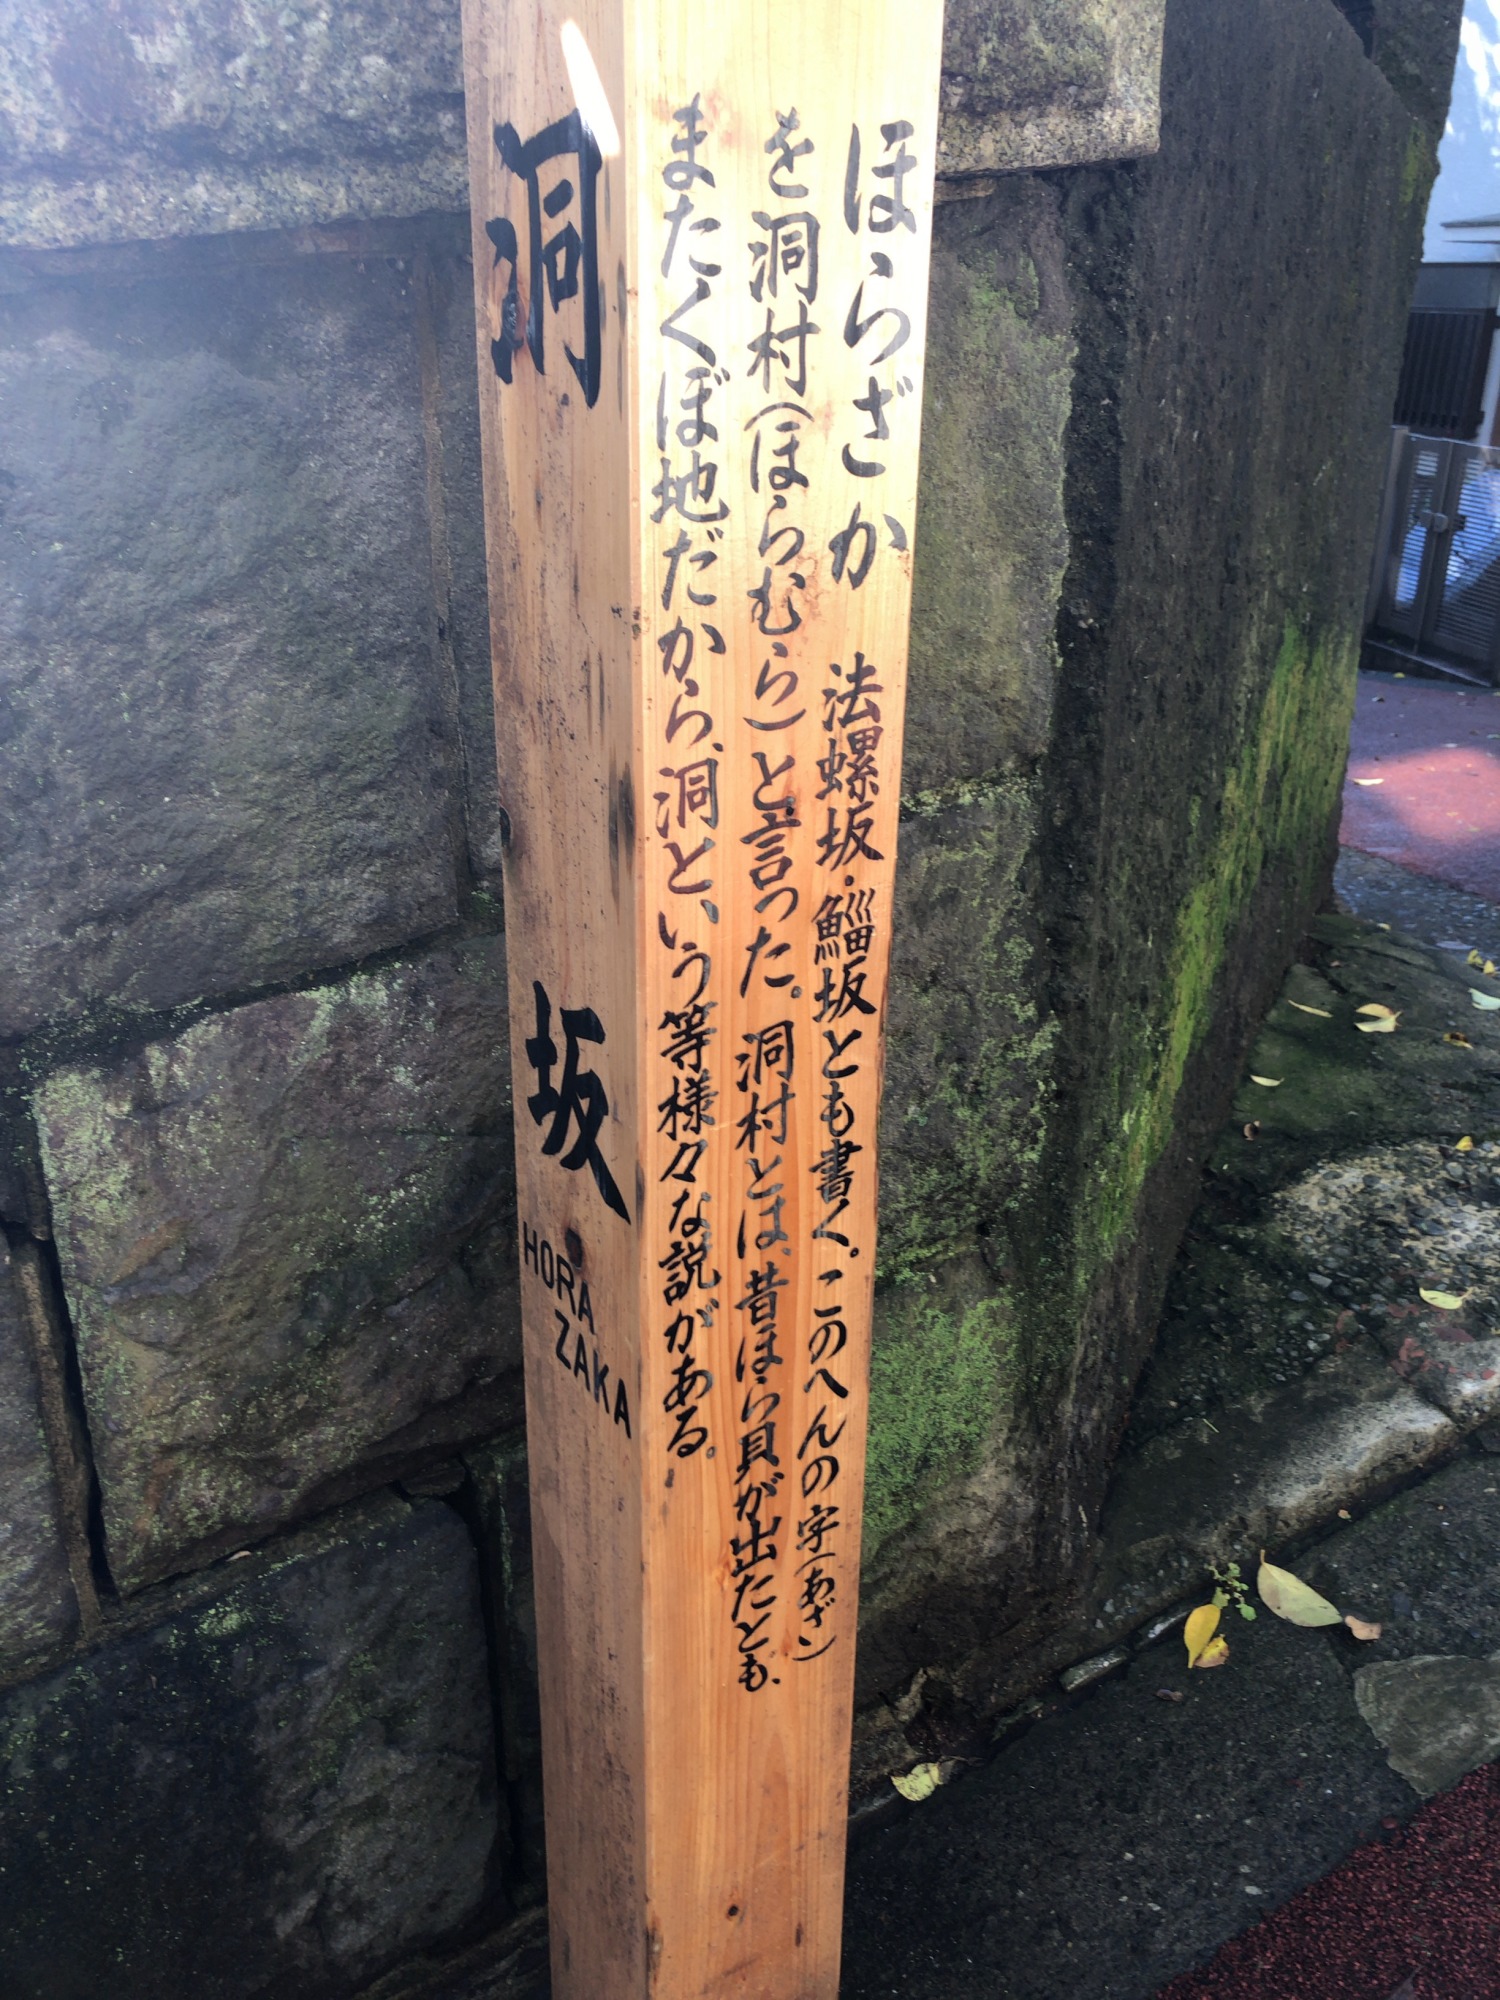 洞坂
HORA
ZAKA
ほらざか 法螺坂・鯔坂とも書く。このへんの字(あざ)
を洞村(ほらむら)と言った。洞村とは、昔ほら貝が出たとも、
またくぼ地だから、洞という等様々な説がある。